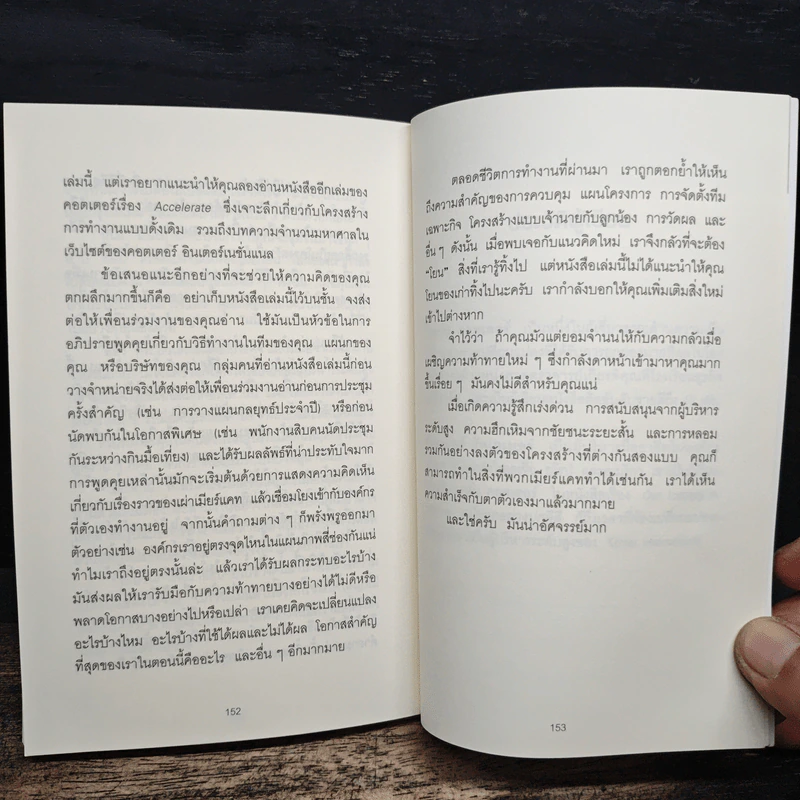 เล่มนี้ แต่เราอยากแนะนำให้คุณลองอ่านหนังสืออีกเล่มของ
คอตเตอร์เรื่อง Accelerate ซึ่งเจาะลึกเกี่ยวกับโครงสร้าง
การทำงานแบบดั้งเดิม รวมถึงบทความจำนวนมหาศาลใน
เว็บไซต์ของคอตเตอร์ อินเตอร์เนชั่นแนล
ข้อเสนอแนะอีกอย่างที่จะช่วยให้ความคิดของคุณ
ตกผลึกมากขึ้นก็คือ อย่าเก็บหนังสือเล่มนี้ไว้บนชั้น จงส่ง
ต่อให้เพื่อนร่วมงานของคุณอ่าน ใช้มันเป็นหัวข้อในการ
อภิปรายพูดคุยเกี่ยวกับวิธีทำงานในทีมของคุณ แผนกของ
คุณ หรือบริษัทของคุณ กลุ่มคนที่อ่านหนังสือเล่มนี้ก่อน
วางจำหน่ายจริงได้ส่งต่อให้เพื่อนร่วมงานอ่านก่อนการประชุม
ครั้งสำคัญ (เช่น การวางแผนกลยุทธ์ประจำปี) หรือก่อน
นัดพบกันในโอกาสพิเศษ (เช่น พนักงานสิบคนนัดประชุม
กันระหว่างกินมื้อเที่ยง) และได้รับผลลัพธ์ที่น่าประทับใจมาก
การพูดคุยเหล่านั้นมักจะเริ่มต้นด้วยการแสดงความคิดเห็น
เกี่ยวกับเรื่องราวของเผ่าเมียร์แคท แล้วเชื่อมโยงเข้ากับองค์กร
ที่ตัวเองทำงานอยู่ จากนั้นคำถามต่าง ๆ ก็พรั่งพรูออกมา
ตัวอย่างเช่น องค์กรเราอยู่ตรงจุดไหนในแผนภาพสี่ช่องกันแน่
ทำไมเราถึงอยู่ตรงนั้นล่ะ แล้วเราได้รับผลกระทบอะไรบ้าง
มันส่งผลให้เรารับมือกับความท้าทายบางอย่างได้ไม่ดีหรือ
พลาดโอกาสบางอย่างไปหรือเปล่า เราเคยคิดจะเปลี่ยนแปลง
อะไรบ้างไหม อะไรบ้างที่ใช้ได้ผลและไม่ได้ผล โอกาสสำคัญ
ที่สุดของเราในตอนนี้คืออะไร และอื่น ๆ อีกมากมาย
152
ตลอดชีวิตการทำงานที่ผ่านมา เราถูกตอกย้ำให้เห็น
ถึงความสำคัญของการควบคุม แผนโครงการ การจัดตั้งทีม
เฉพาะกิจ โครงสร้างแบบเจ้านายกับลูกน้อง การวัดผล และ
อื่น ๆ ดังนั้น เมื่อพบเจอกับแนวคิดใหม่ เราจึงกลัวที่จะต้อง
“โยน” สิ่งที่เรารู้ทิ้งไป แต่หนังสือเล่มนี้ไม่ได้แนะนำให้คุณ
โยนของเก่าทิ้งไปนะครับ เรากำลังบอกให้คุณเพิ่มเติมสิ่งใหม่
เข้าไปต่างหาก
จำไว้ว่า ถ้าคุณมัวแต่ยอมจำนนให้กับความกลัวเมื่อ
เผชิญความท้าทายใหม่ ๆ ซึ่งกำลังดาหน้าเข้ามาหาคุณมาก
ขึ้นเรื่อย ๆ มันคงไม่ดีสำหรับคุณแน่
เมื่อเกิดความรู้สึกเร่งด่วน การสนับสนุนจากผู้บริหาร
ระดับสูง ความฮึกเหิมจากชัยชนะระยะสั้น และการหลอม
รวมกันอย่างลงตัวของโครงสร้างที่ต่างกันสองแบบ คุณก็
สามารถทำในสิ่งที่พวกเมียร์แคททำได้เช่นกัน เราได้เห็น
ความสำเร็จกับตาตัวเองมาแล้วมากมาย
และใช่ครับ มันน่าอัศจรรย์มาก
153